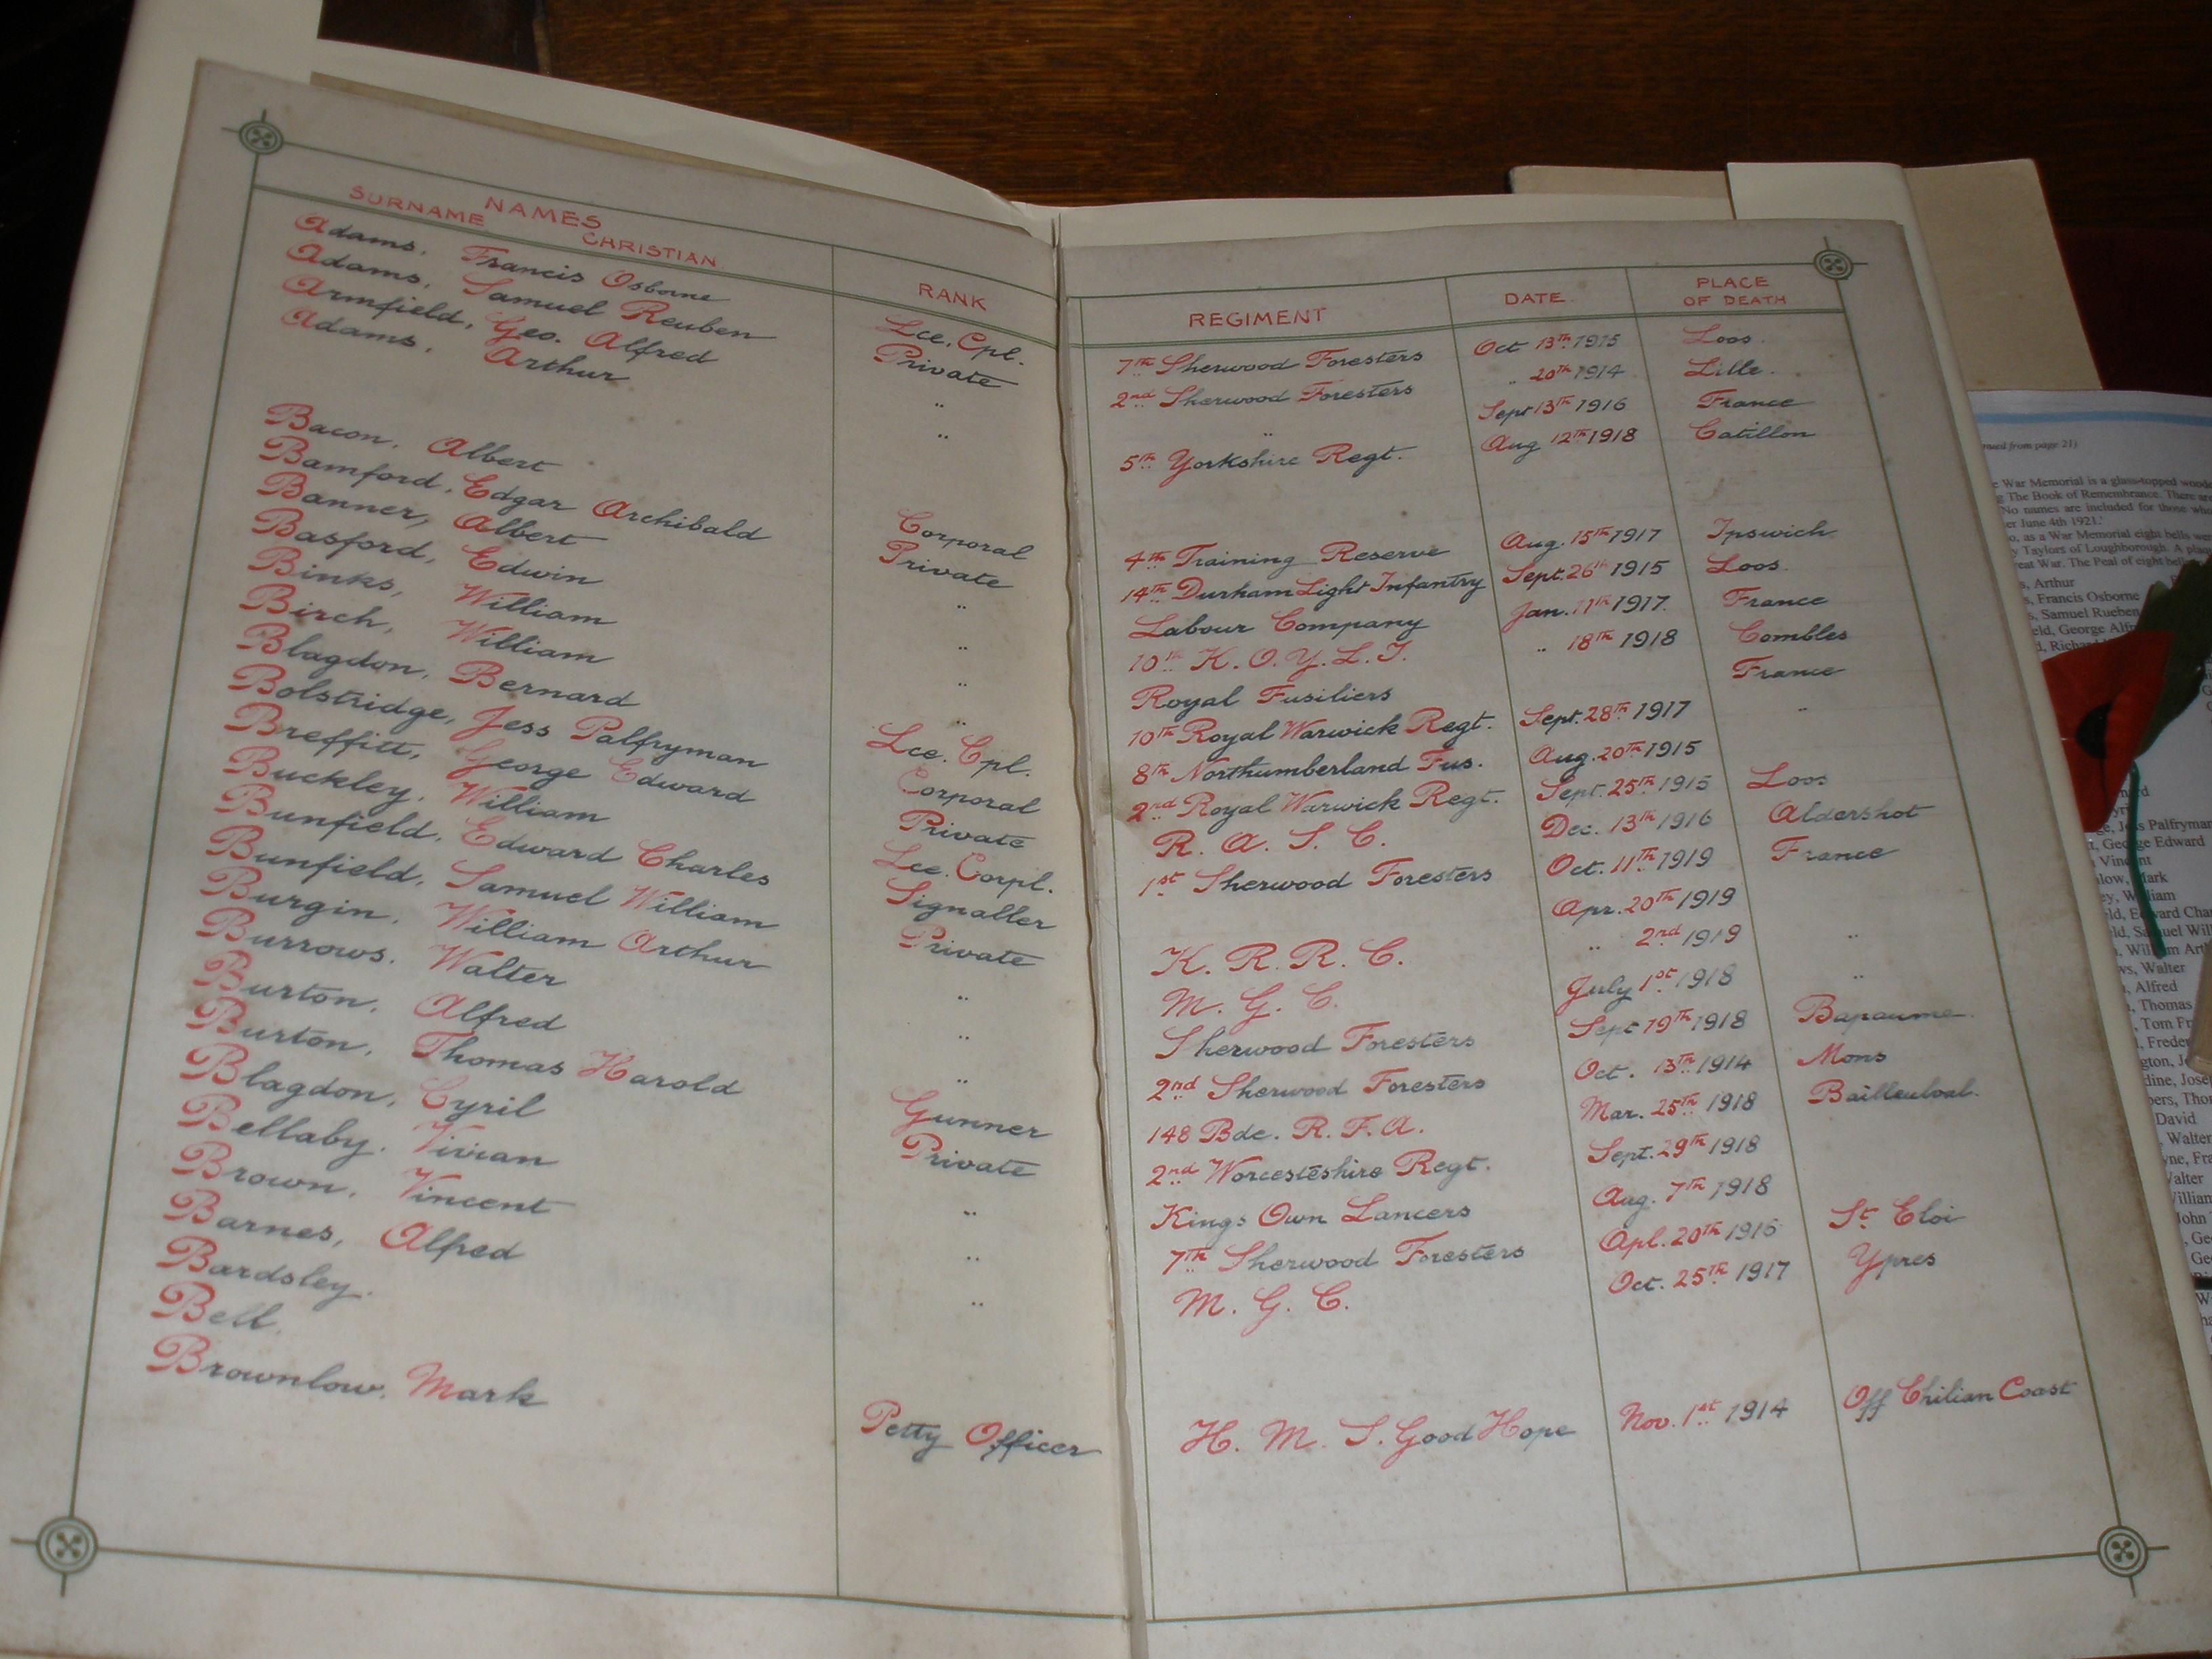 NAMES
SURNAME CHRISTIAN RANK REGIMENT DATE PLACE OF DEATH
Adams, Francis Osborne Lce. Cpl. 7th Sherwood Foresters Oct 13th 1915 Loos.
Adams, Samuel Reuben Private 2nd Sherwood Foresters " 20th 1914 Lille.
Armfield, Geo. Alfred " " Sept 13th 1916 France
Adams, Arthur " 5th Yorkshire Regt. Aug 12th 1918 Catillon
Bacon, Albert Corporal 4th Training Reserve Aug. 15th 1917 Ipswich
Bamford, Edgar Archibald Private 14th Durham Light Infantry Sept. 26th 1915 Loos.
Banner, Albert " Labour Company Jan. 11th 1917. France
Basford, Edwin " 10th K. O. Y. L. I. " 18th 1918 Combles
Binks, William " Royal Fusiliers France
Birch, William " 10th Royal Warwick Regt. Sept. 28th 1917 "
Blagdon, Bernard Lce. Cpl. 8th Northumberland Fus. Aug. 20th 1915
Bolstridge, Jess Palfryman Corporal 2nd Royal Warwick Regt. Sept. 25th 1915 Loos
Breffitt, George Edward Private R. A. S. C. Dec. 13th 1916 Aldershot
Buckley, William Lce. Corpl. 1st Sherwood Foresters Oct. 11th 1919 France
Bunfield, Edward Charles Signaller Apr. 20th 1919
Bunfield, Samuel William Private K. R. R. C. " 2nd 1919 "
Burgin, William Arthur " M. G. C. July 1st 1918 "
Burrows, Walter " Sherwood Foresters Sept 19th 1918 Bapaume.
Burton, Alfred " 2nd Sherwood Foresters Oct. 13th 1914 Mons
Burton, Thomas Harold Gunner 148 Bde. R. F. A. Mar. 25th 1918 Bailleulval.
Blagdon, Cyril Private 2nd Worcesteshire Regt. Sept. 29th 1918
Bellaby, Vivian " Kings Own Lancers Aug. 7th 1918
Brown, Vincent " 7th Sherwood Foresters Apl. 20th 1916 St Eloi
Barnes, Alfred " M. G. C. Oct. 25th 1917 Ypres
Bardsley.
Bell.
Brownlow, Mark Petty Officer H. M. S. Good Hope Nov. 1st 1914 Off Chilian Coast
from page 21)
War Memorial is a glass-topped
The Book of Remembrance. There are
No names are included for those who
June 4th 1921.'
as a War Memorial eight bells
Taylors of Loughborough. A
War. The Peal of eight
Arthur
Francis Osborne
Samuel Rueben
George
Palfryman
George Edward
Vincent
Mark
William
Edward
Samuel
William
Walter
Alfred
Thomas
Tom
David
Walter